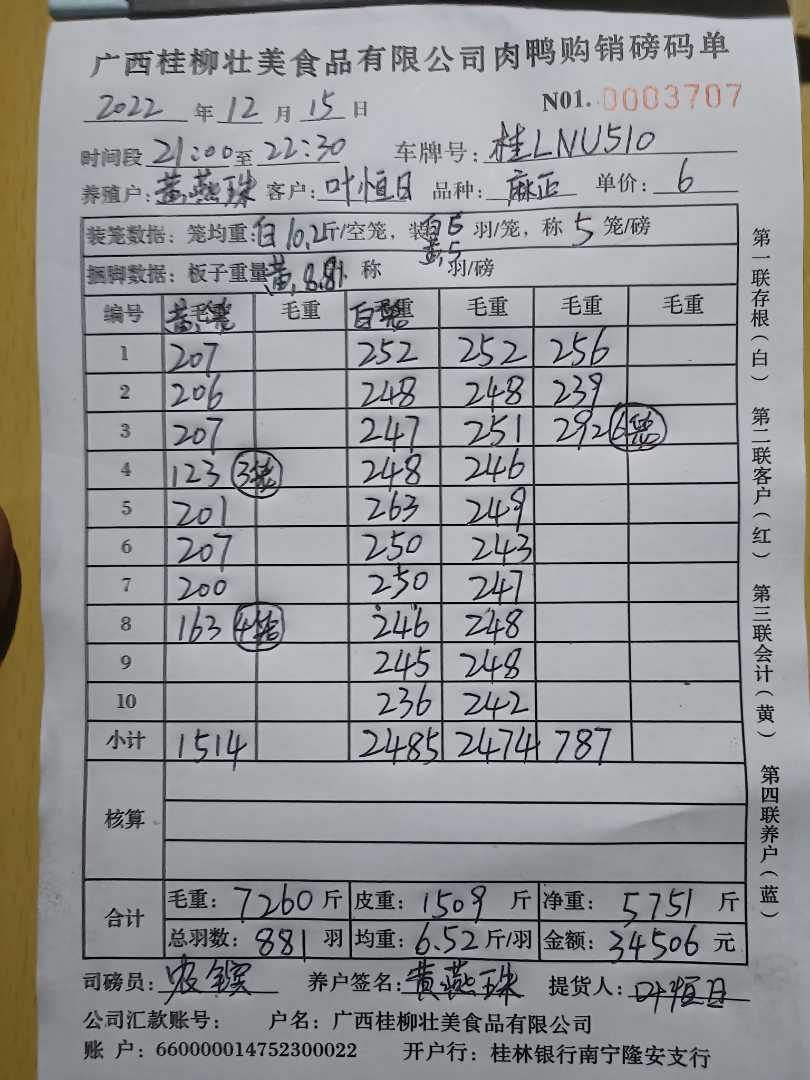 广西桂柳壮美食品有限公司肉鸭购销磅码单
2022 年 12 月 15 日 N01. 0003707
时间段 21:00 至 22:30 车牌号: 桂LNU510
养殖户: 黄燕珠 客户: 叶恒日 品种: 麻正 单价: 6
装笼数据: 笼均重: 白10.2斤/空笼, 装 白6 羽/笼, 称 5 笼/磅
黄.5
捆脚数据: 板子重量 黄.8.81. 称 羽/磅
编号 毛重 毛重 毛重 毛重 毛重 毛重
黄笼 白笼
1 207 252 252 256
2 206 248 248 239
3 207 247 251 292 6笼
4 123 3笼 248 246
5 201 263 249
6 207 250 243
7 200 250 247
8 163 4笼 246 248
9 245 248
10 236 242
小计 1514 2485 2474 787
核算
合计
毛重: 7260 斤 皮重: 1509 斤 净重: 5751 斤
总羽数: 881 羽 均重: 6.52 斤/羽 金额: 34506 元
司磅员: 养户签名: 黄燕珠 提货人: 叶恒日
公司汇款账号: 户名: 广西桂柳壮美食品有限公司
账 户: 660000014752300022 开户行: 桂林银行南宁隆安支行
第一联存根(白) 第二联客户(红) 第三联会计(黄) 第四联养户(蓝)